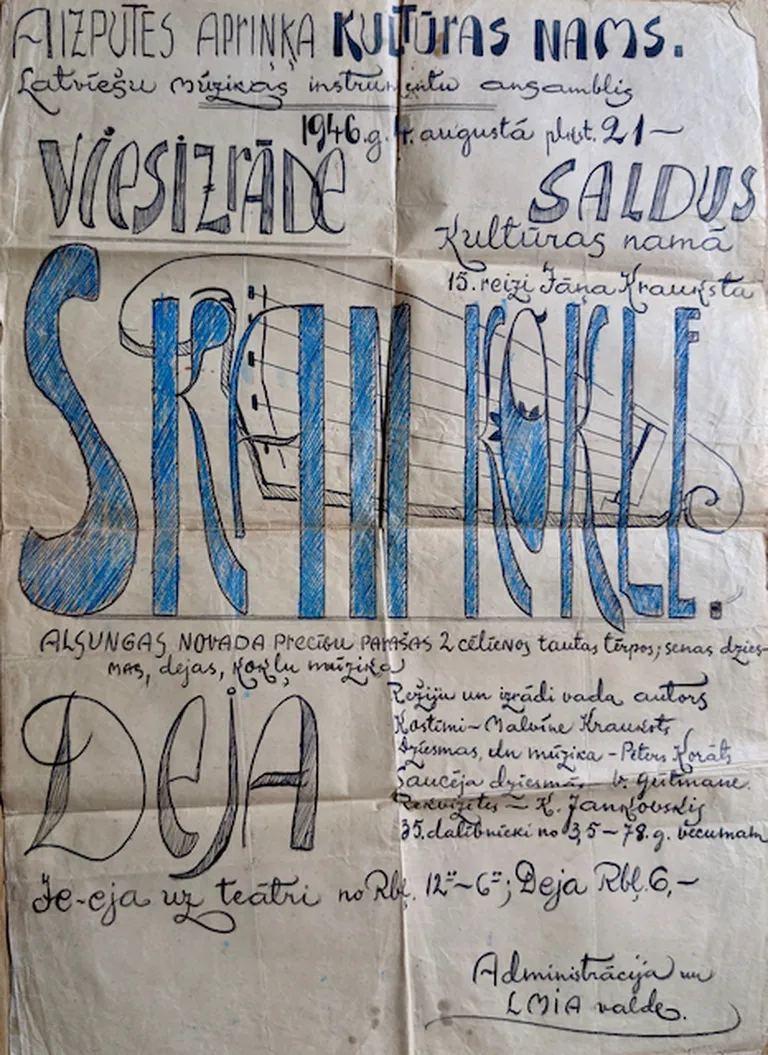 AIZPUTES APRIŅĶA KULTŪRAS NAMS.
Latviešu Mūzikas instrumentu ansamblis
1946.g. 4. augustā plkst. 21 —
VIESIZRĀDE SALDUS
Kultūras namā
15. reizi Jāņa Krauksta
SKAN KOKLE.
ALŠUNGAS NOVADA precību parašas 2 cēlienos tautas tērpos; senas dzies-
mas, dejas, kokļu mūzika
DEJA
Režiju un izrādi vada autors
Kostīmi - Malvīne Krauksts
Dziesmas, un mūzika - Pēters Korāts
Saucēja dziesmās V. Gūtmane.
Rekvizītes - K. Jankovskis
35. dalībnieki no 3,5 - 78. g. vecumam
Ie-eja uz teātri no Rbļ. 12.- - 6.-; Deja Rbļ. 6,-
Administrācija un
LMIA valde.